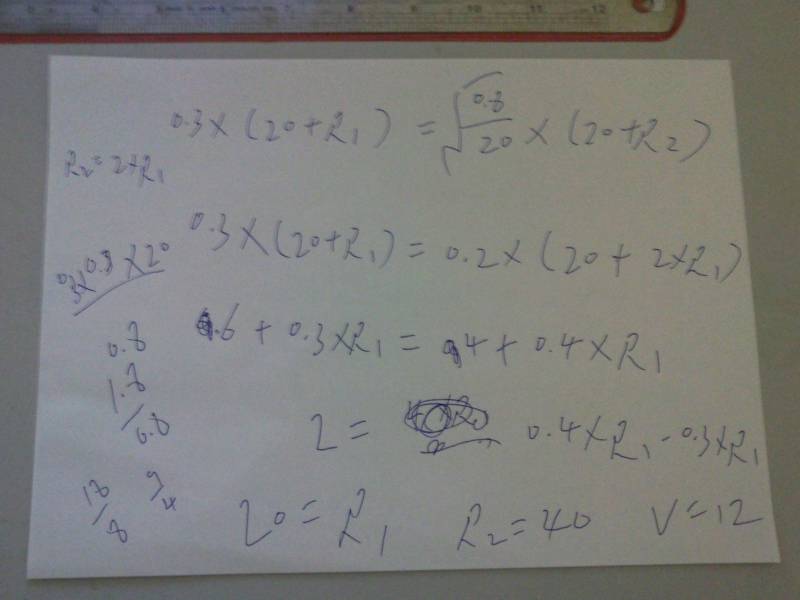 0.3×(20+R₁) = √(0.8/20) × (20+R₂)
R₂=2×R₁
0.3×(20+R₁) = 0.2×(20+2×R₁)
0.3×0.8×20
6 + 0.3×R₁ = 4 + 0.4×R₁
0.8
1.8/0.8
2 = 0.4×R₁ - 0.3×R₁
18/8 9/4
20 = R₁ R₂=40 V=12